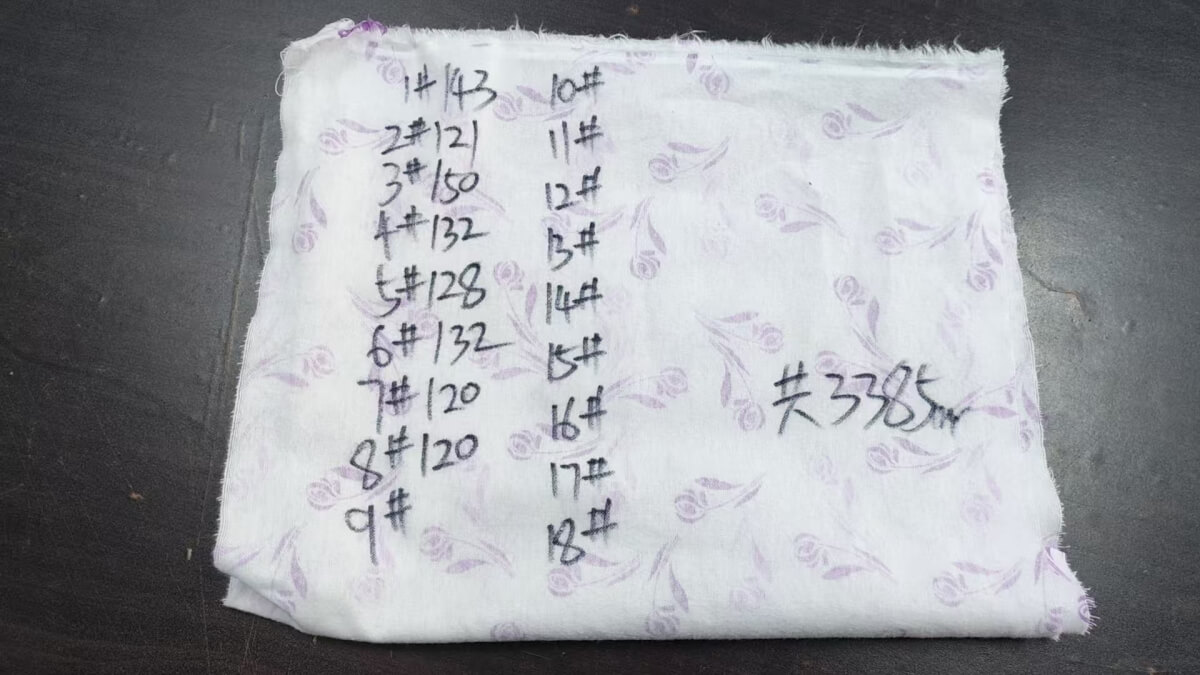 1# 143
2# 121
3# 150
4# 132
5# 128
6# 132
7# 120
8# 120
9#
10#
11#
12#
13#
14#
15#
16#
17#
18#
共3385m